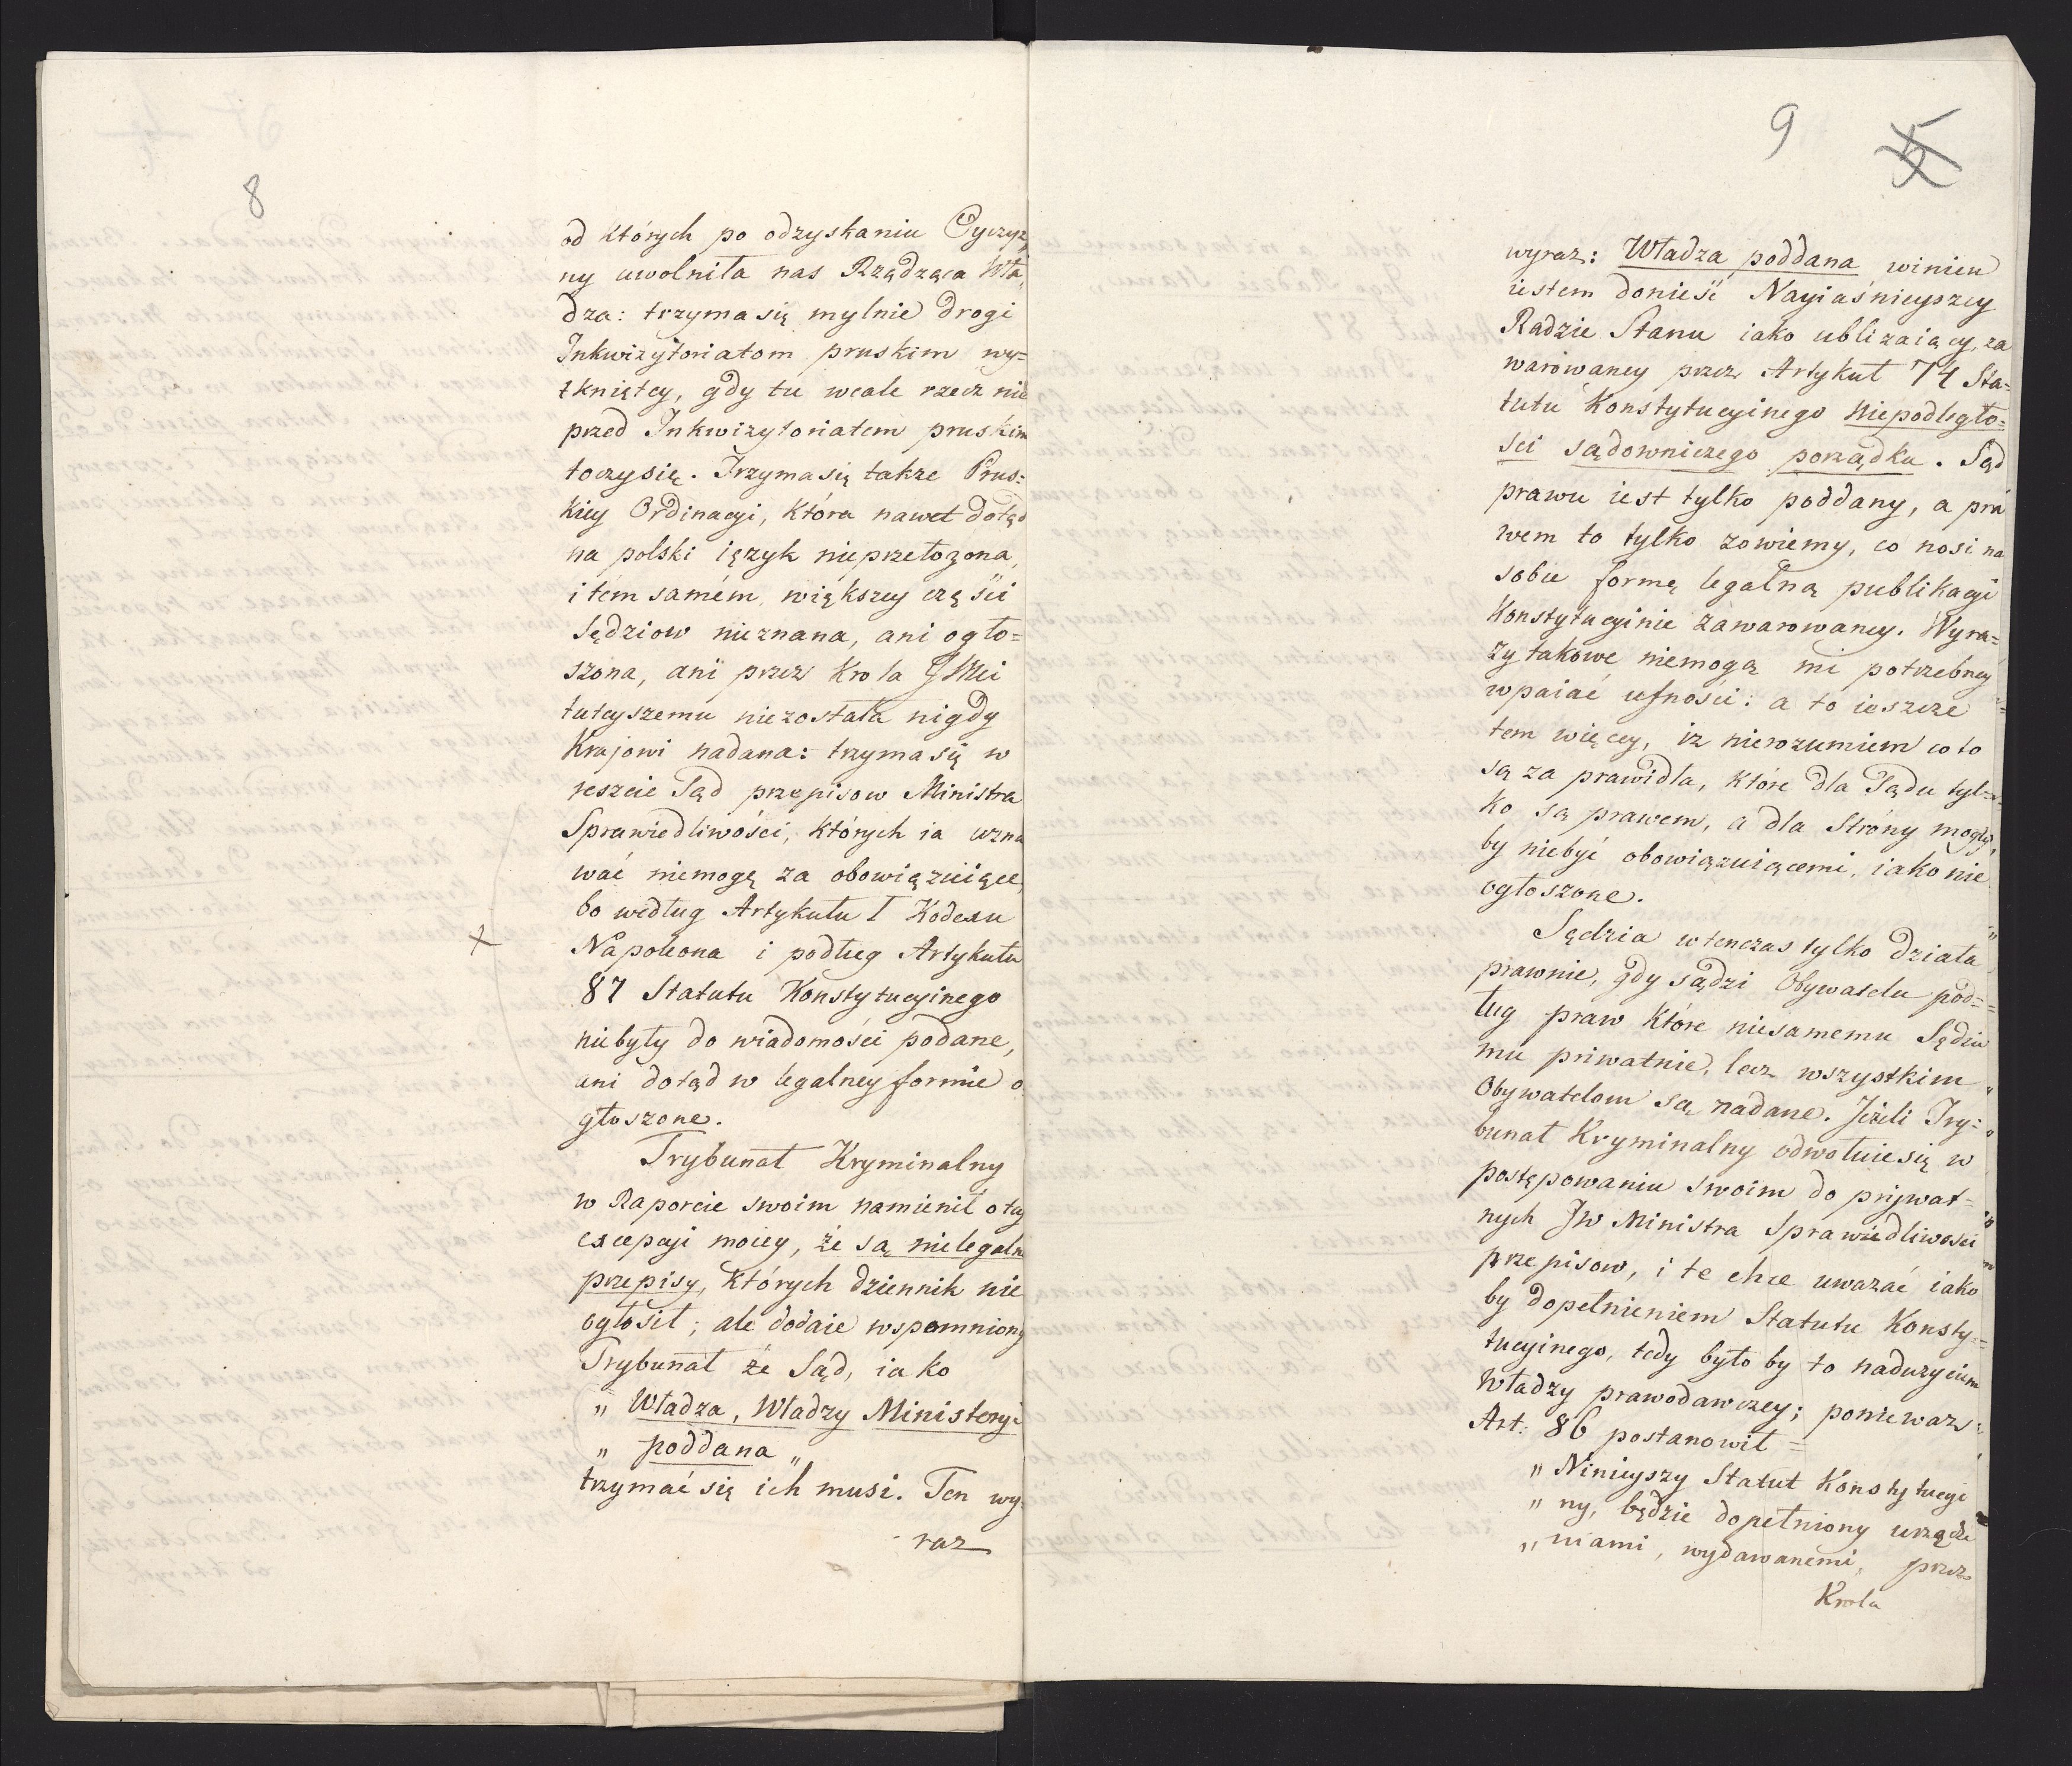 8
od których po odzyskaniu Oyczyz,
ny uwolniła nas Rządząca Wła,
dza: trzyma się mylnie drogi
Inkwizytoriatom pruskim wy=
tkniętey, gdy tu wcale rzecz nie
przed Inkwizytoriatem pruskim
toczysię. Trzymasię takze Prus=
kiey Ordinacyi, która nawet dotąd
na polski ięzyk nieprzełozona,
i tém samém większey częśći
Sędziow nieznana, ani ogło=
szona, ani przez Krola JMci
tuteyszemu niezostała nigdy
Krajowi nadana: trzyma się w
reszcie Sąd przepisow Ministra
Sprawiedliwości, których ia uzna
wać niemogę za obowięzuiące,
bo według Artykułu I Kodexu
Napoleona i podług Artykułu
87 Statutu Konstytucyinego
niebyły do wiadomości podane,
ani dotąd w legalney formie o
głoszone.
Trybunał Kryminalny
w Raporcie swoim namienił o tey
excepcyi moiey, że są nielegalne
przepisy, których dziennik nie
ogłosił; ale dodaie wspomniony
Trybunał że Sąd, iako
„ Władza, Władzy Ministeryi
„ poddana „
trzymać się ich musi. Ten wy=
raz
9
5
wyraz: Władza poddana winien
iestem donieść Nayiaśnieyszey
Radzie Stanu iako ublizaiący, za
warowaney przez Artykuł 74 Sta=
tutu Konstytucyinego Niepodległo=
sci sądowniczego porządku. Sąd
prawu iest tylko poddany, a pra
wem to tylko zowiemy, co nosi na
sobie formę legalną publikacyi
Konstytucyinie zawarowaney. Wyra=
zy takowe niemogą mi potrzebney
wpaiać ufności: a to ieszcze
tem więcey, iz nierozumiem co to
są za prawidła, które dla Sądu tyl=
ko są prawem, a dla Stróny mogły,
by niebyć obowiązuiącemi, iako nie
ogłoszone.
Sędzia wtenczas tylko działa
prawnie, gdy sądzi Obywatela pod=
ług praw które niesamemu Sędzie
mu priwatnie, lecz wszystkim
Obywatelom są nadane. Jeżeli Try=
bunał Kryminalny odwołuiesię w
postępowaniu swoim do prywat=
nych JW Ministra Sprawiedliwości
przepisow, i te chce uwazać iako
by dopełnieniem Statutu Konsty=
tucyinego, tedy było by to naduzyciem
Władzy prawodawczey; poniewaz
Art. 86 postanowił =
„ Ninieyszy Statut Konstytucyi
„ ny, będzie dopełniony urządze
„ niami, wydawanemi, przez
Krola